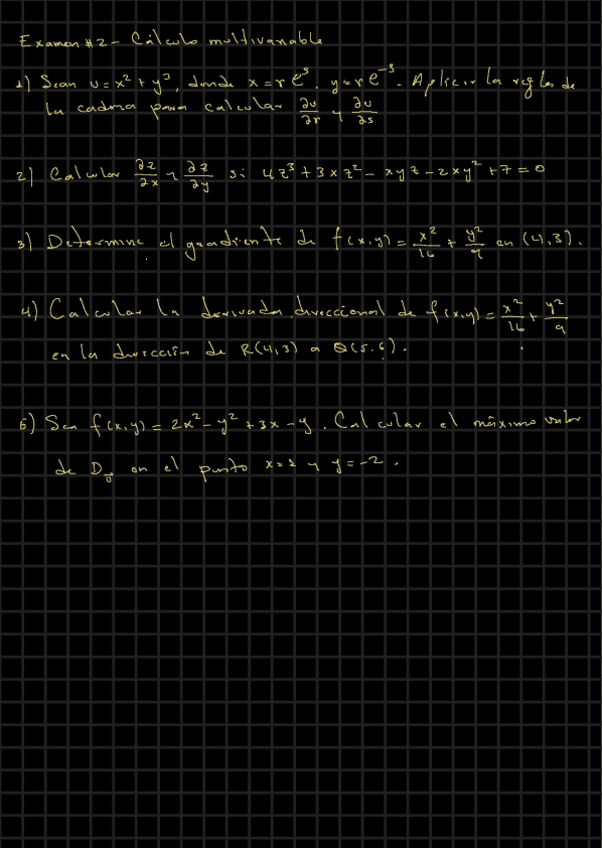 Examen #2 - Cálculo multivariable
1) Sean u = x² + y³, donde x = r e^s, y = r e^-s. Aplicar la regla de
la cadena para calcular ∂u/∂r y ∂u/∂s
2) Calcular ∂z/∂x y ∂z/∂y si 4z³ + 3xz² - xyz - 2xy² + 7 = 0
3) Determine el gradiente de f(x,y) = x²/16 + y²/9 en (4,3).
4) Calcular la derivada direccional de f(x,y) = x²/16 + y²/9
en la dirección de R(4,3) a Q(5,6).
5) Sea f(x,y) = 2x² - y² + 3x - y. Calcular el máximo valor
de D en el punto y y = -2.